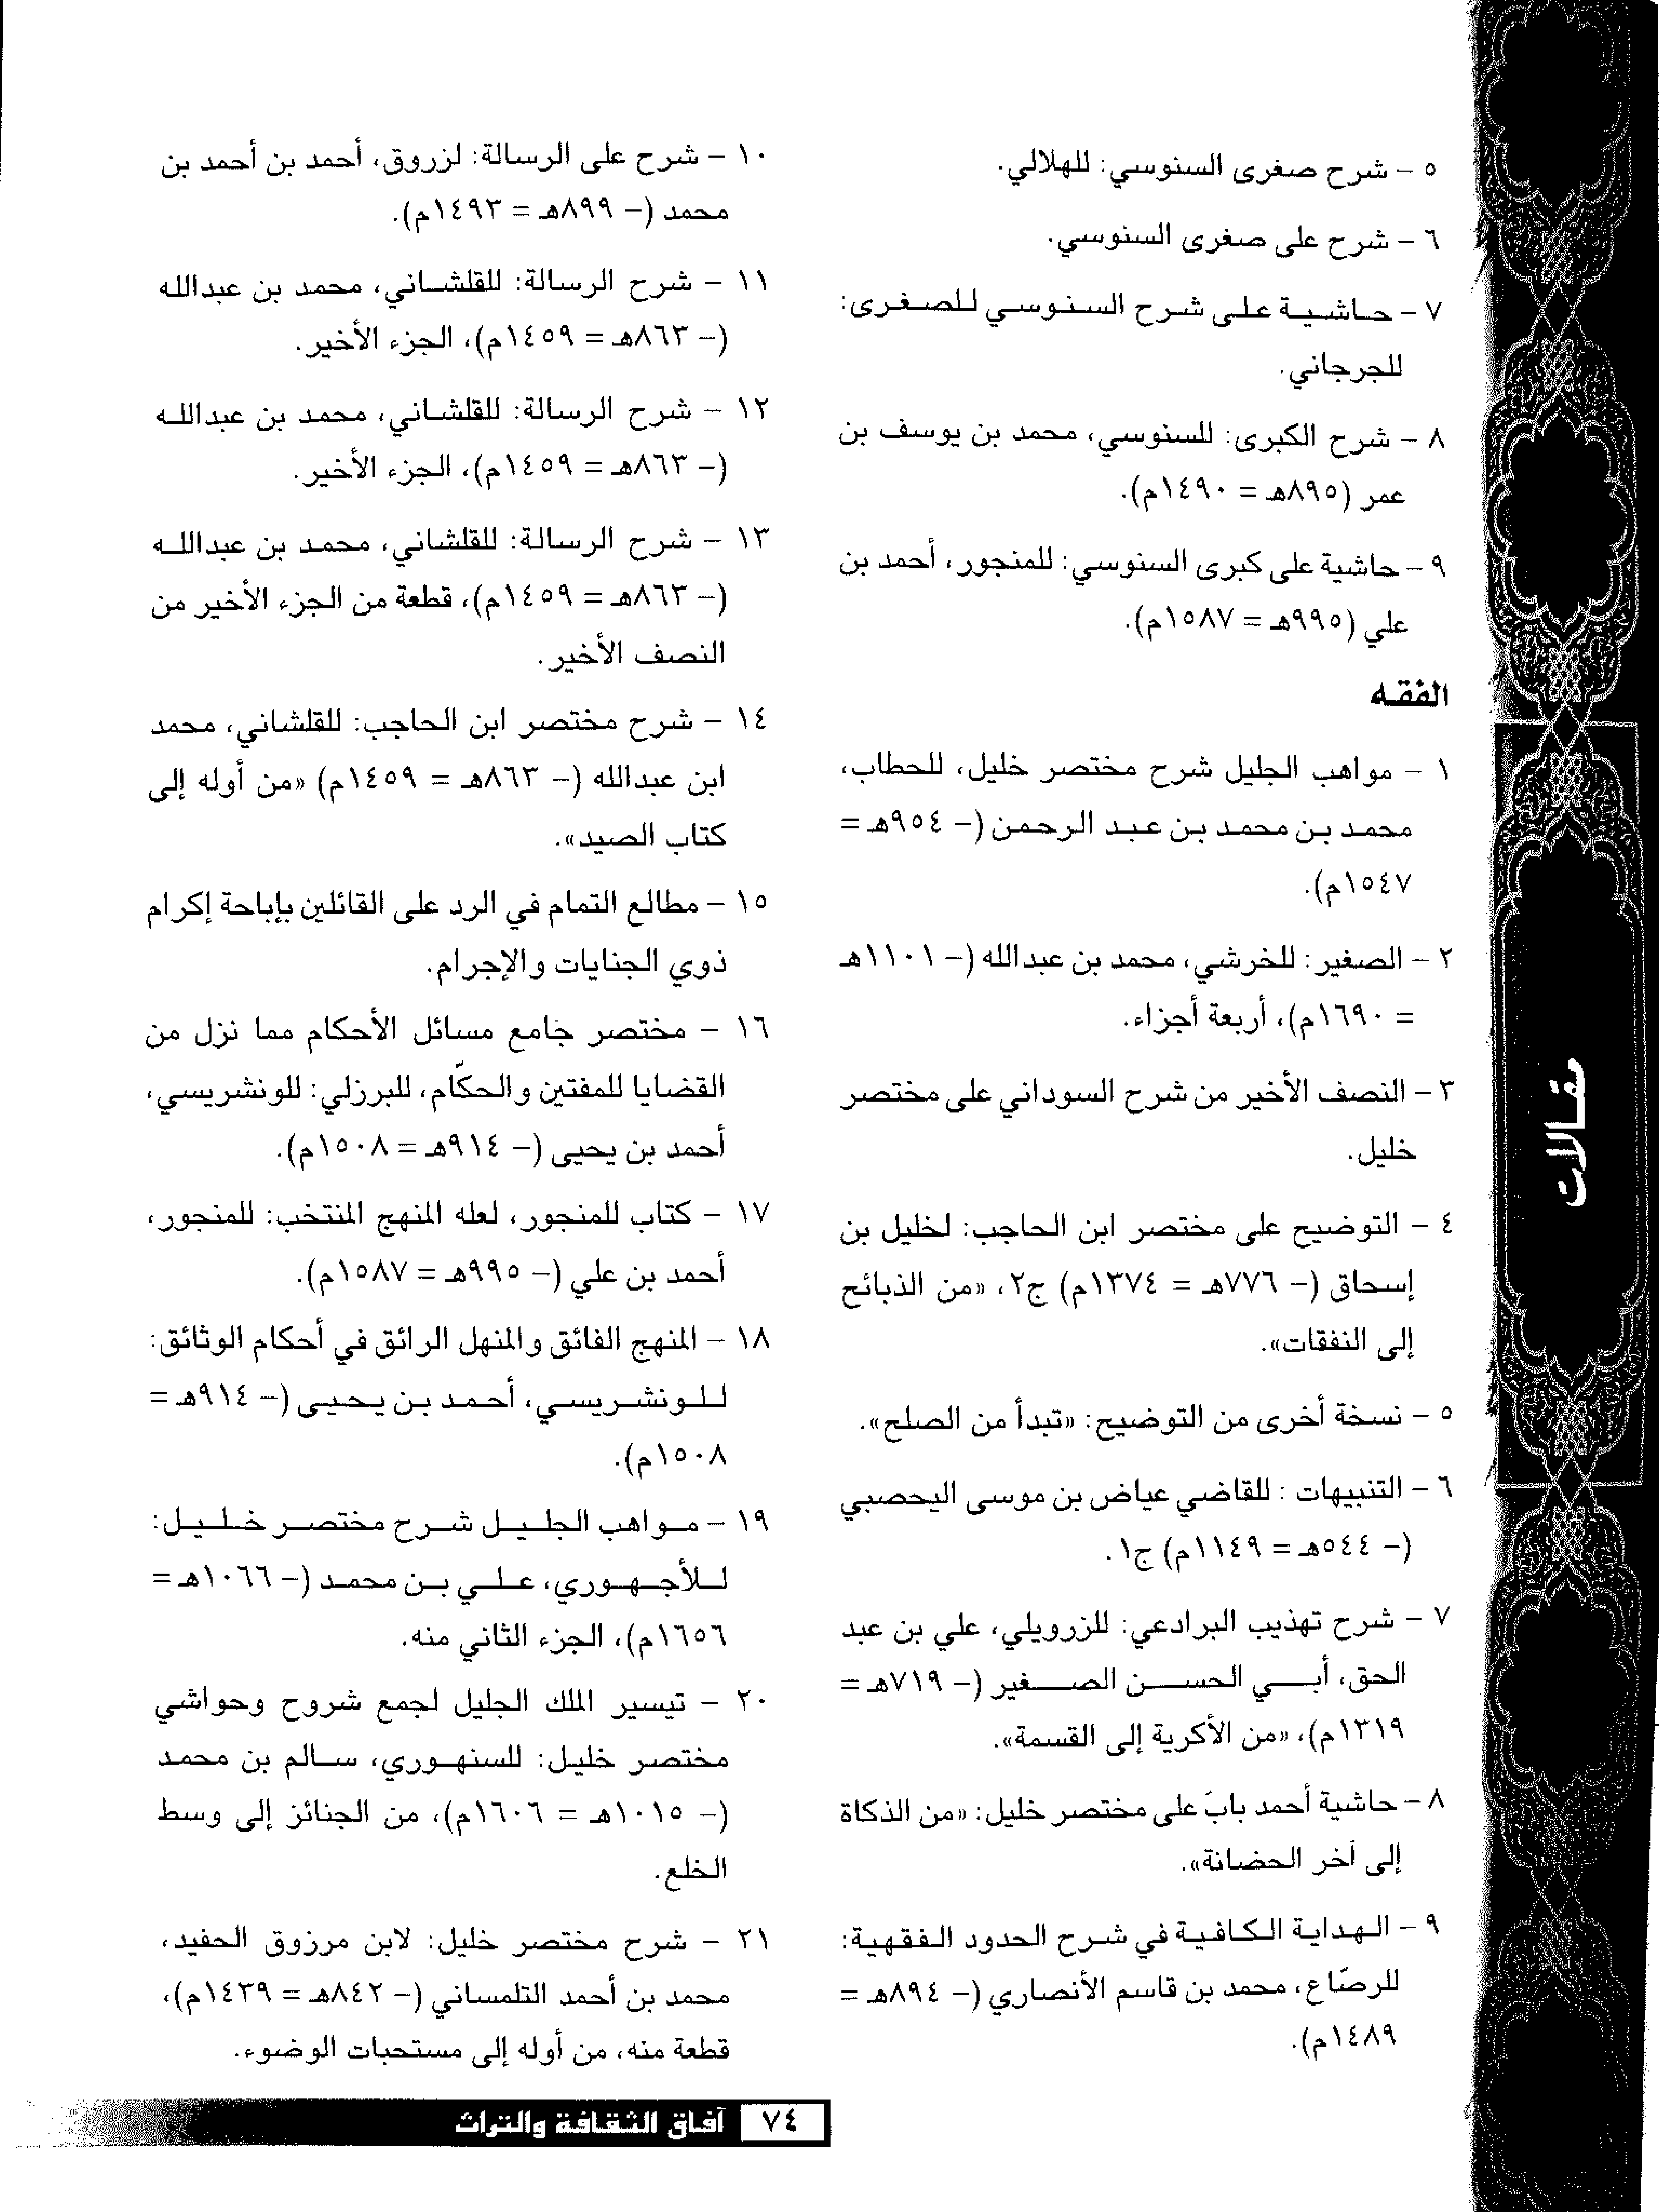 ٥ - شرح صغرى السنوسي: للهلالي.
٦ - شرح على صغرى السنوسي.
٧ - حاشية على شرح السنوسي للصغرى:
للجرجاني.
٨ - شرح الكبرى: للسنوسي، محمد بن يوسف بن
عمر (٨٩٥هـ = ١٤٩٠م).
٩ - حاشية على كبرى السنوسي: للمنجور، أحمد بن
علي (٩٩٥هـ = ١٥٨٧م).
الفقه
١ - مواهب الجليل شرح مختصر خليل، للحطاب،
محمد بن محمد بن عبد الرحمن (- ٩٥٤هـ =
١٥٤٧م).
٢ - الصغير: للخرشي، محمد بن عبدالله (- ١١٠١هـ
= ١٦٩٠م)، أربعة أجزاء.
٣ - النصف الأخير من شرح السوداني على مختصر
خليل.
٤ - التوضيح على مختصر ابن الحاجب: لخليل بن
إسحاق (- ٧٧٦هـ = ١٣٧٤م) ج٢، «من الذبائح
إلى النفقات».
٥ - نسخة أخرى من التوضيح: «تبدأ من الصلح».
٦ - التنبيهات : للقاضي عياض بن موسى اليحصبي
(- ٥٤٤هـ = ١١٤٩م) ج١.
٧ - شرح تهذيب البرادعي: للزرويلي، علي بن عبد
الحق، أبي الحسن الصغير (- ٧١٩هـ =
١٣١٩م)، «من الأكرية إلى القسمة».
٨ - حاشية أحمد بابَ على مختصر خليل: «من الذكاة
إلى آخر الحضانة».
٩ - الهداية الكافية في شرح الحدود الفقهية:
للرصّاع، محمد بن قاسم الأنصاري (- ٨٩٤هـ =
١٤٨٩م).
١٠ - شرح على الرسالة: لزروق، أحمد بن أحمد بن
محمد (- ٨٩٩هـ = ١٤٩٣م).
١١ - شرح الرسالة: للقلشاني، محمد بن عبدالله
(- ٨٦٣هـ = ١٤٥٩م)، الجزء الأخير.
١٢ - شرح الرسالة: للقلشاني، محمد بن عبدالله
(- ٨٦٣هـ = ١٤٥٩م)، الجزء الأخير.
١٣ - شرح الرسالة: للقلشاني، محمد بن عبدالله
(- ٨٦٣هـ = ١٤٥٩م)، قطعة من الجزء الأخير من
النصف الأخير.
١٤ - شرح مختصر ابن الحاجب: للقلشاني، محمد
ابن عبدالله (- ٨٦٣هـ = ١٤٥٩م) «من أوله إلى
كتاب الصيد».
١٥ - مطالع التمام في الرد على القائلين بإباحة إكرام
ذوي الجنايات والإجرام.
١٦ - مختصر جامع مسائل الأحكام مما نزل من
القضايا للمفتين والحكّام، للبرزلي: للونشريسي،
أحمد بن يحيى (- ٩١٤هـ = ١٥٠٨م).
١٧ - كتاب للمنجور، لعله المنهج المنتخب: للمنجور،
أحمد بن علي (- ٩٩٥هـ = ١٥٨٧م).
١٨ - المنهج الفائق والمنهل الرائق في أحكام الوثائق:
للونشريسي، أحمد بن يحيى (- ٩١٤هـ =
١٥٠٨م).
١٩ - مواهب الجليل شرح مختصر خليل:
للأجهوري، علي بن محمد (- ١٠٦٦هـ =
١٦٥٦م)، الجزء الثاني منه.
٢٠ - تيسير الملك الجليل لجمع شروح وحواشي
مختصر خليل: للسنهوري، سالم بن محمد
(- ١٠١٥هـ = ١٦٠٦م)، من الجنائز إلى وسط
الخلع.
٢١ - شرح مختصر خليل: لابن مرزوق الحفيد،
محمد بن أحمد التلمساني (- ٨٤٢هـ = ١٤٣٩م)،
قطعة منه، من أوله إلى مستحبات الوضوء.
مقالات
٧٤ آفاق الثقافة والتراث